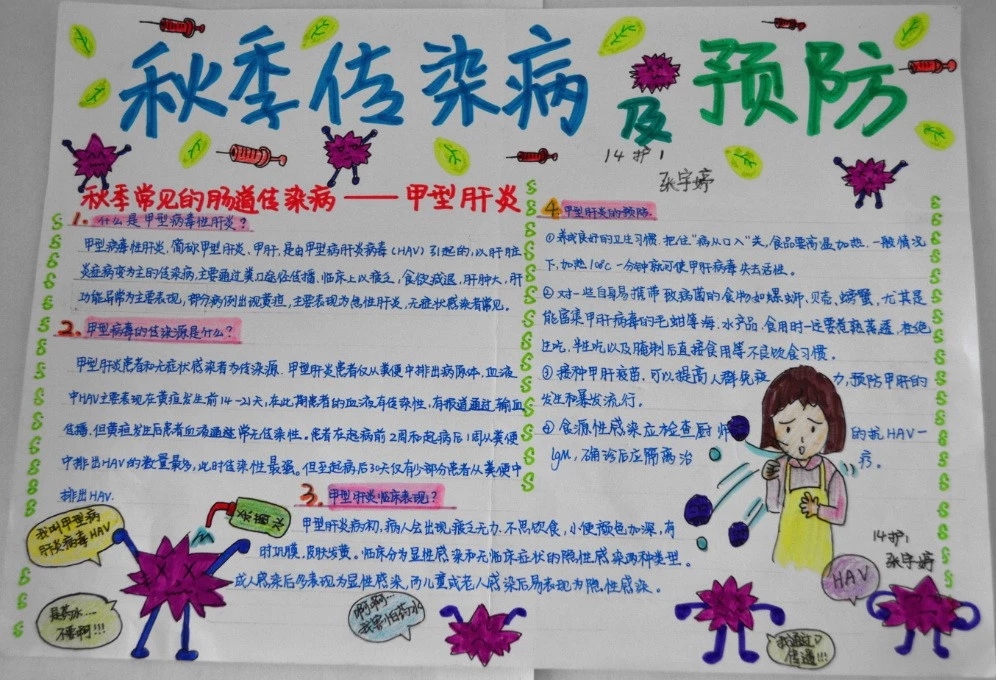 秋季传染病及预防
14护1
张宇婷
秋季常见的肠道传染病——甲型肝炎
1. 什么是甲型病毒性肝炎？
甲型病毒性肝炎，简称甲型肝炎、甲肝，是由甲型病肝炎病毒（HAV）引起的，以肝脏
炎症病变为主的传染病，主要通过粪口途径传播，临床上以疲乏，食欲减退，肝肿大，肝
功能异常为主要表现，部分病例出现黄疸，主要表现为急性肝炎，无症状感染者常见。
2. 甲型病毒的传染源是什么？
甲型肝炎患者和无症状感染者为传染源，甲型肝炎患者仅从粪便中排出病原体，血液
中HAV主要表现在黄疸发生前14-21天，在此期患者的血液有传染性，有报道通过输血
传播，但黄疸发生后患者血液通常无传染性。患者在起病前2周和起病后1周从粪便
中排出HAV的数量最多，此时传染性最强。但至起病后30天仅有少部分患者从粪便中
排出HAV.
3. 甲型肝炎临床表现？
甲型肝炎病初，病人会出现疲乏无力，不思饮食，小便颜色加深，有
时巩膜，皮肤发黄。临床分为显性感染和无临床症状的隐性感染两种类型。
成人感染后多表现为显性感染，而儿童或老人感染后易表现为隐性感染。
4 甲型肝炎的预防
①养成良好的卫生习惯，把住“病从口入”关，食品要高温加热，一般情况
下，加热100℃一分钟就可使甲肝病毒失去活性。
②对一些自身易携带致病菌的食物如螺蛳、贝壳、螃蟹，尤其是
能富集甲肝病毒的毛蚶等海、水产品，食用时一定要煮熟蒸透，杜绝
生吃，半生吃以及腌制后直接食用等不良饮食习惯。
③接种甲肝疫苗，可以提高人群免疫力，预防甲肝的
发生和暴发流行。
④食源性感染应检查厨师的抗HAV-
IgM，确诊后应隔离治疗。
我叫甲型病
肝炎病毒HAV
杀菌水
是药水...
不要啊!!!
啊啊...
我害怕药水
14护1
张宇婷
HAV
我通过口
传播!!!